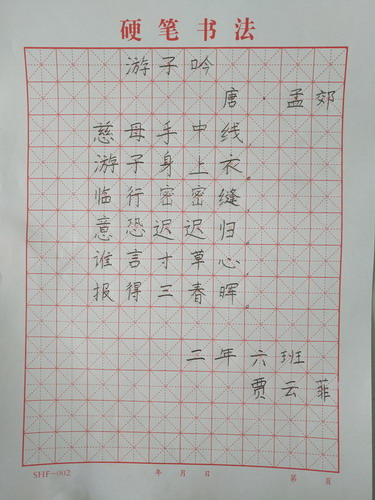 硬笔书法
游子吟
唐·孟郊
慈母手中线,
游子身上衣。
临行密密缝,
意恐迟迟归。
谁言寸草心,
报得三春晖。
二年六班
贾云菲
SHF-002 年 月 日 第 页